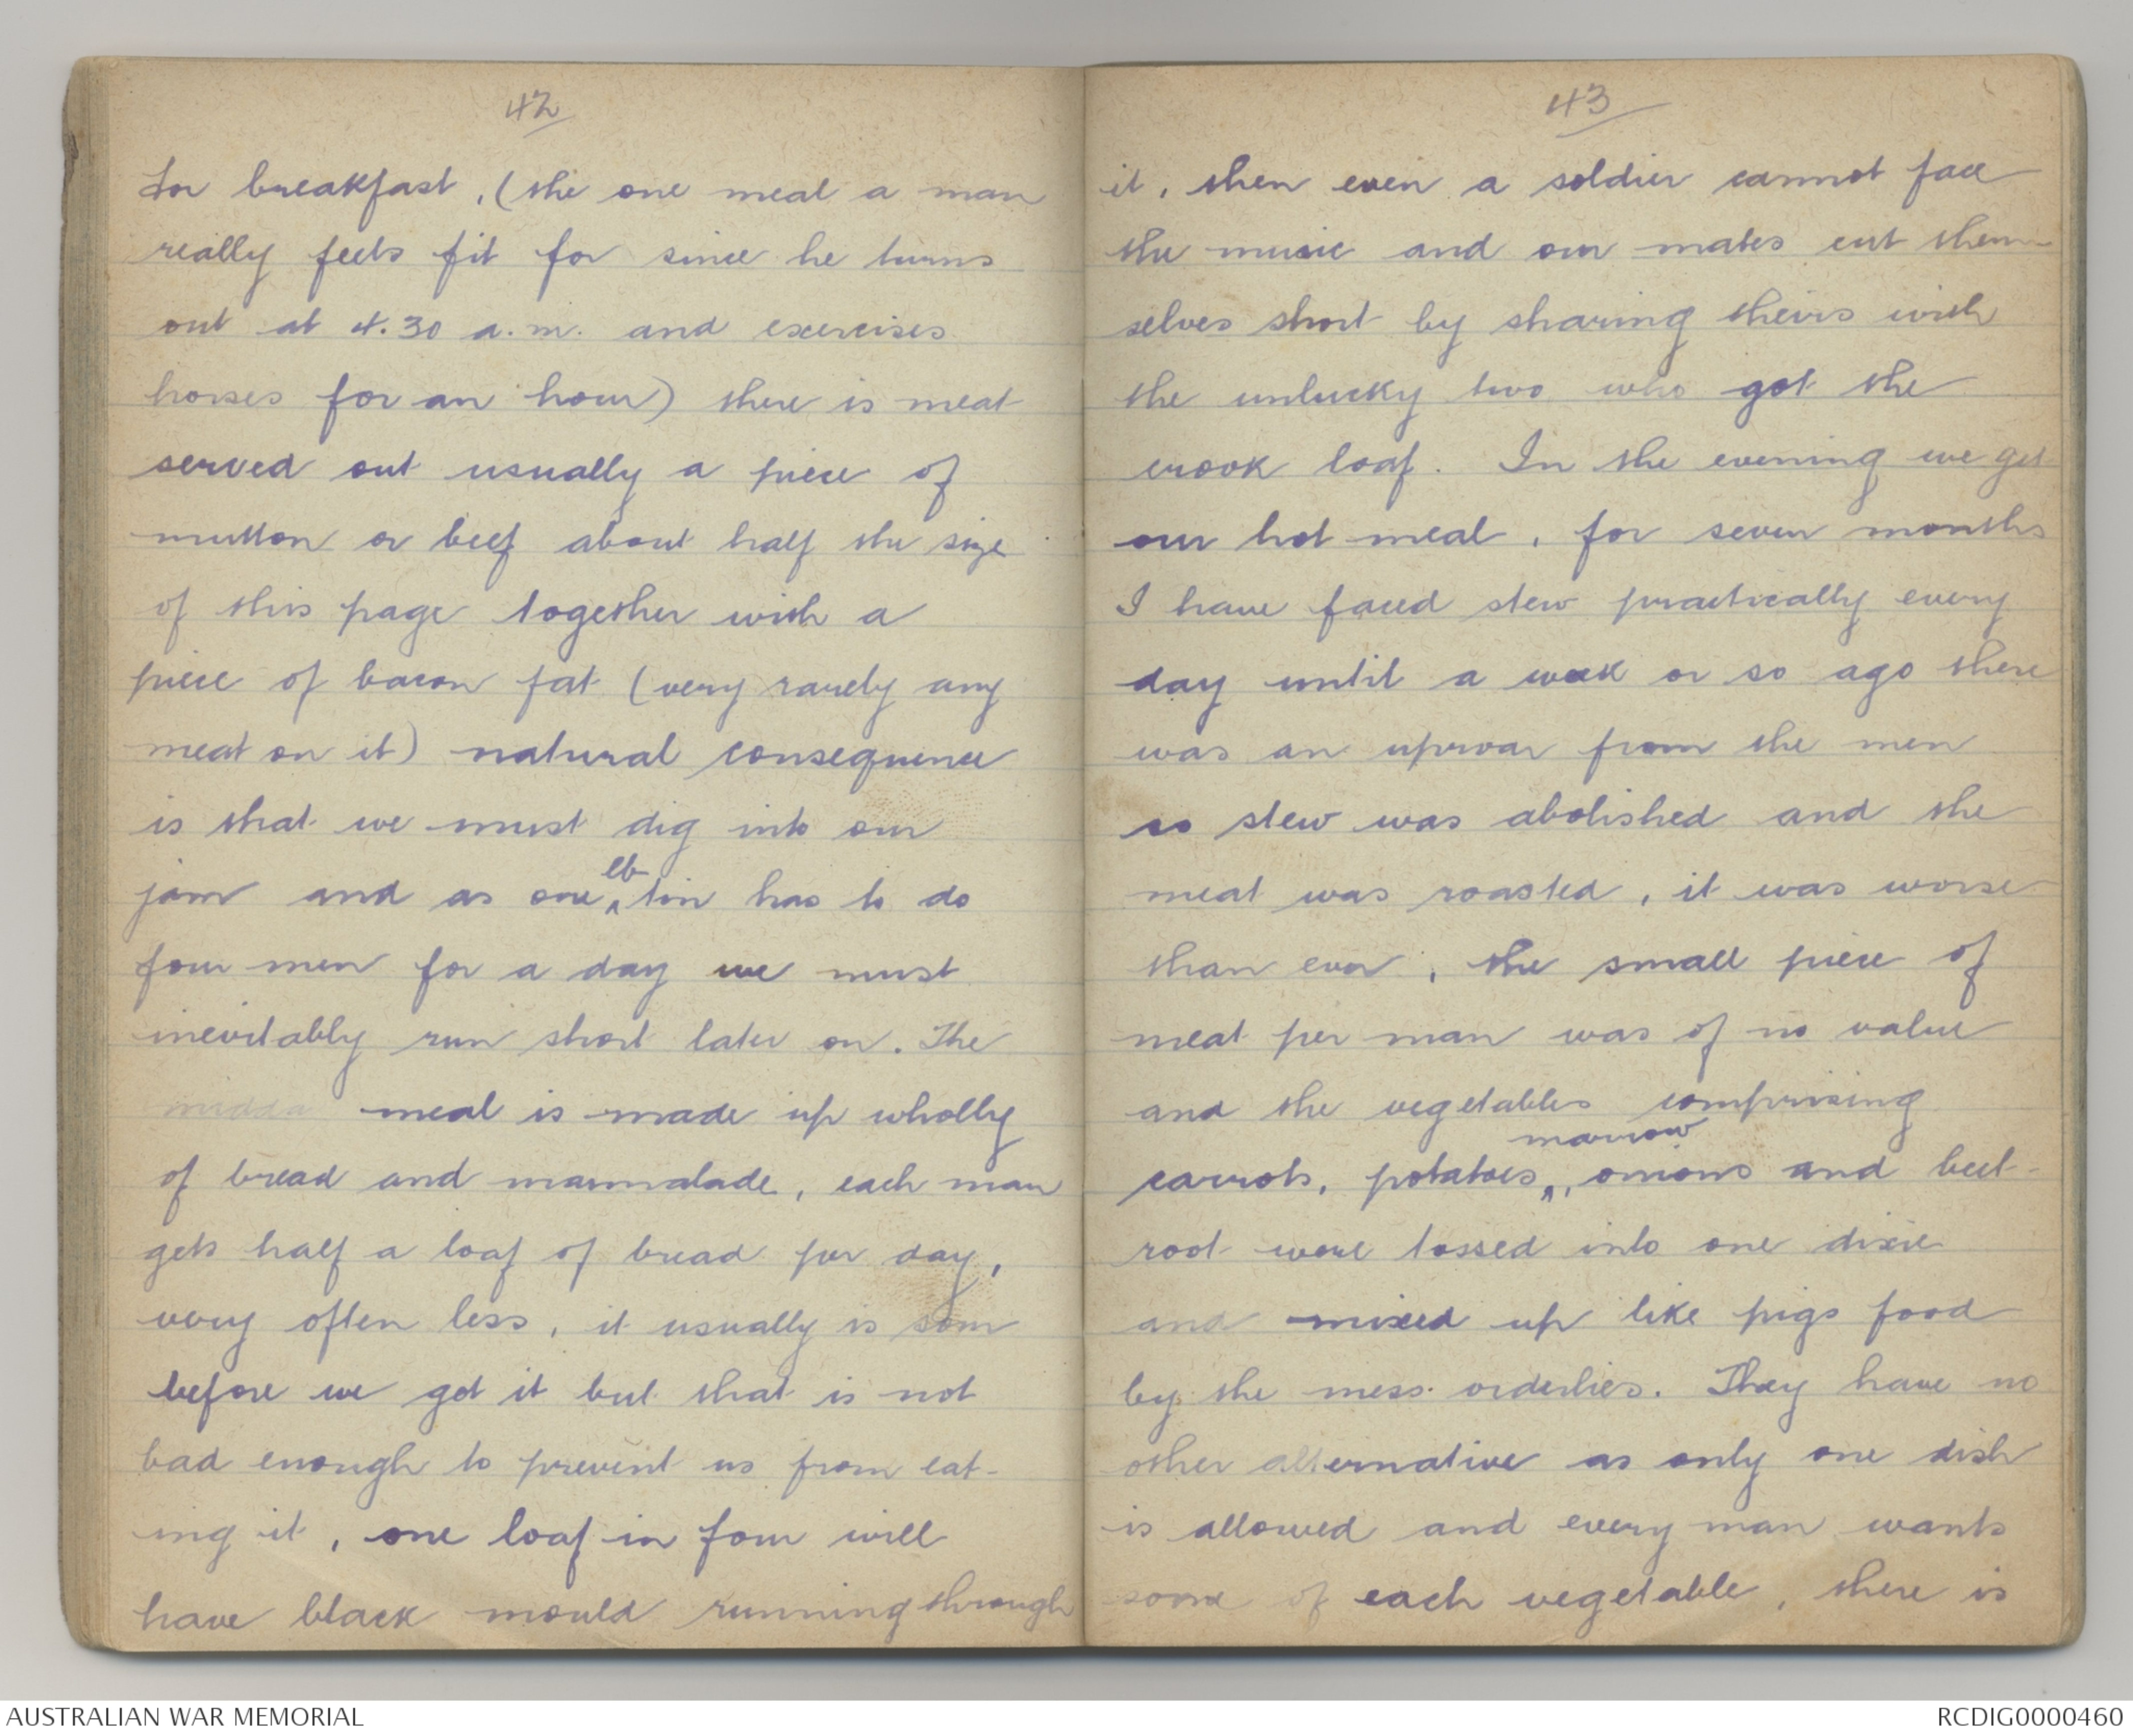 42
for breakfast, (the one meal a man
really feels fit for since he turns
out at 4.30 a.m. and exercises
horses for an hour) there is meat
served out usually a piece of
mutton or beef about half the size
of this page together with a
piece of bacon fat (very rarely any
meat on it) natural consequence
is that we must dig into our
jam and as one lb tin has to do
four men for a day we must
inevitably run short later on. The
midda meal is made up wholly
of bread and marmalade, each man
gets half a loaf of bread per day,
very often less, it usually is sour
before we get it but that is not
bad enough to prevent us from eat-
ing it, one loaf in four will
have black mould running through
43
it, then even a soldier cannot face
the music and our mates cut them-
selves short by sharing theirs with
the unlucky two who got the
crook loaf. In the evening we get
our hot meal, for seven months
I have faced stew practically every
day until a week or so ago there
was an uproar from the men
so stew was abolished and the
meat was roasted, it was worse
than ever, the small piece of
meat per man was of no value
and the vegetables comprising
carrots, potatoes, marrow, onions and beet-
root were tossed into one dixie
and mixed up like pigs food
by the mess orderlies. They have no
other alternative as only one dish
is allowed and every man wants
some of each vegetable, there is
AUSTRALIAN WAR MEMORIAL
RCDIG0000460